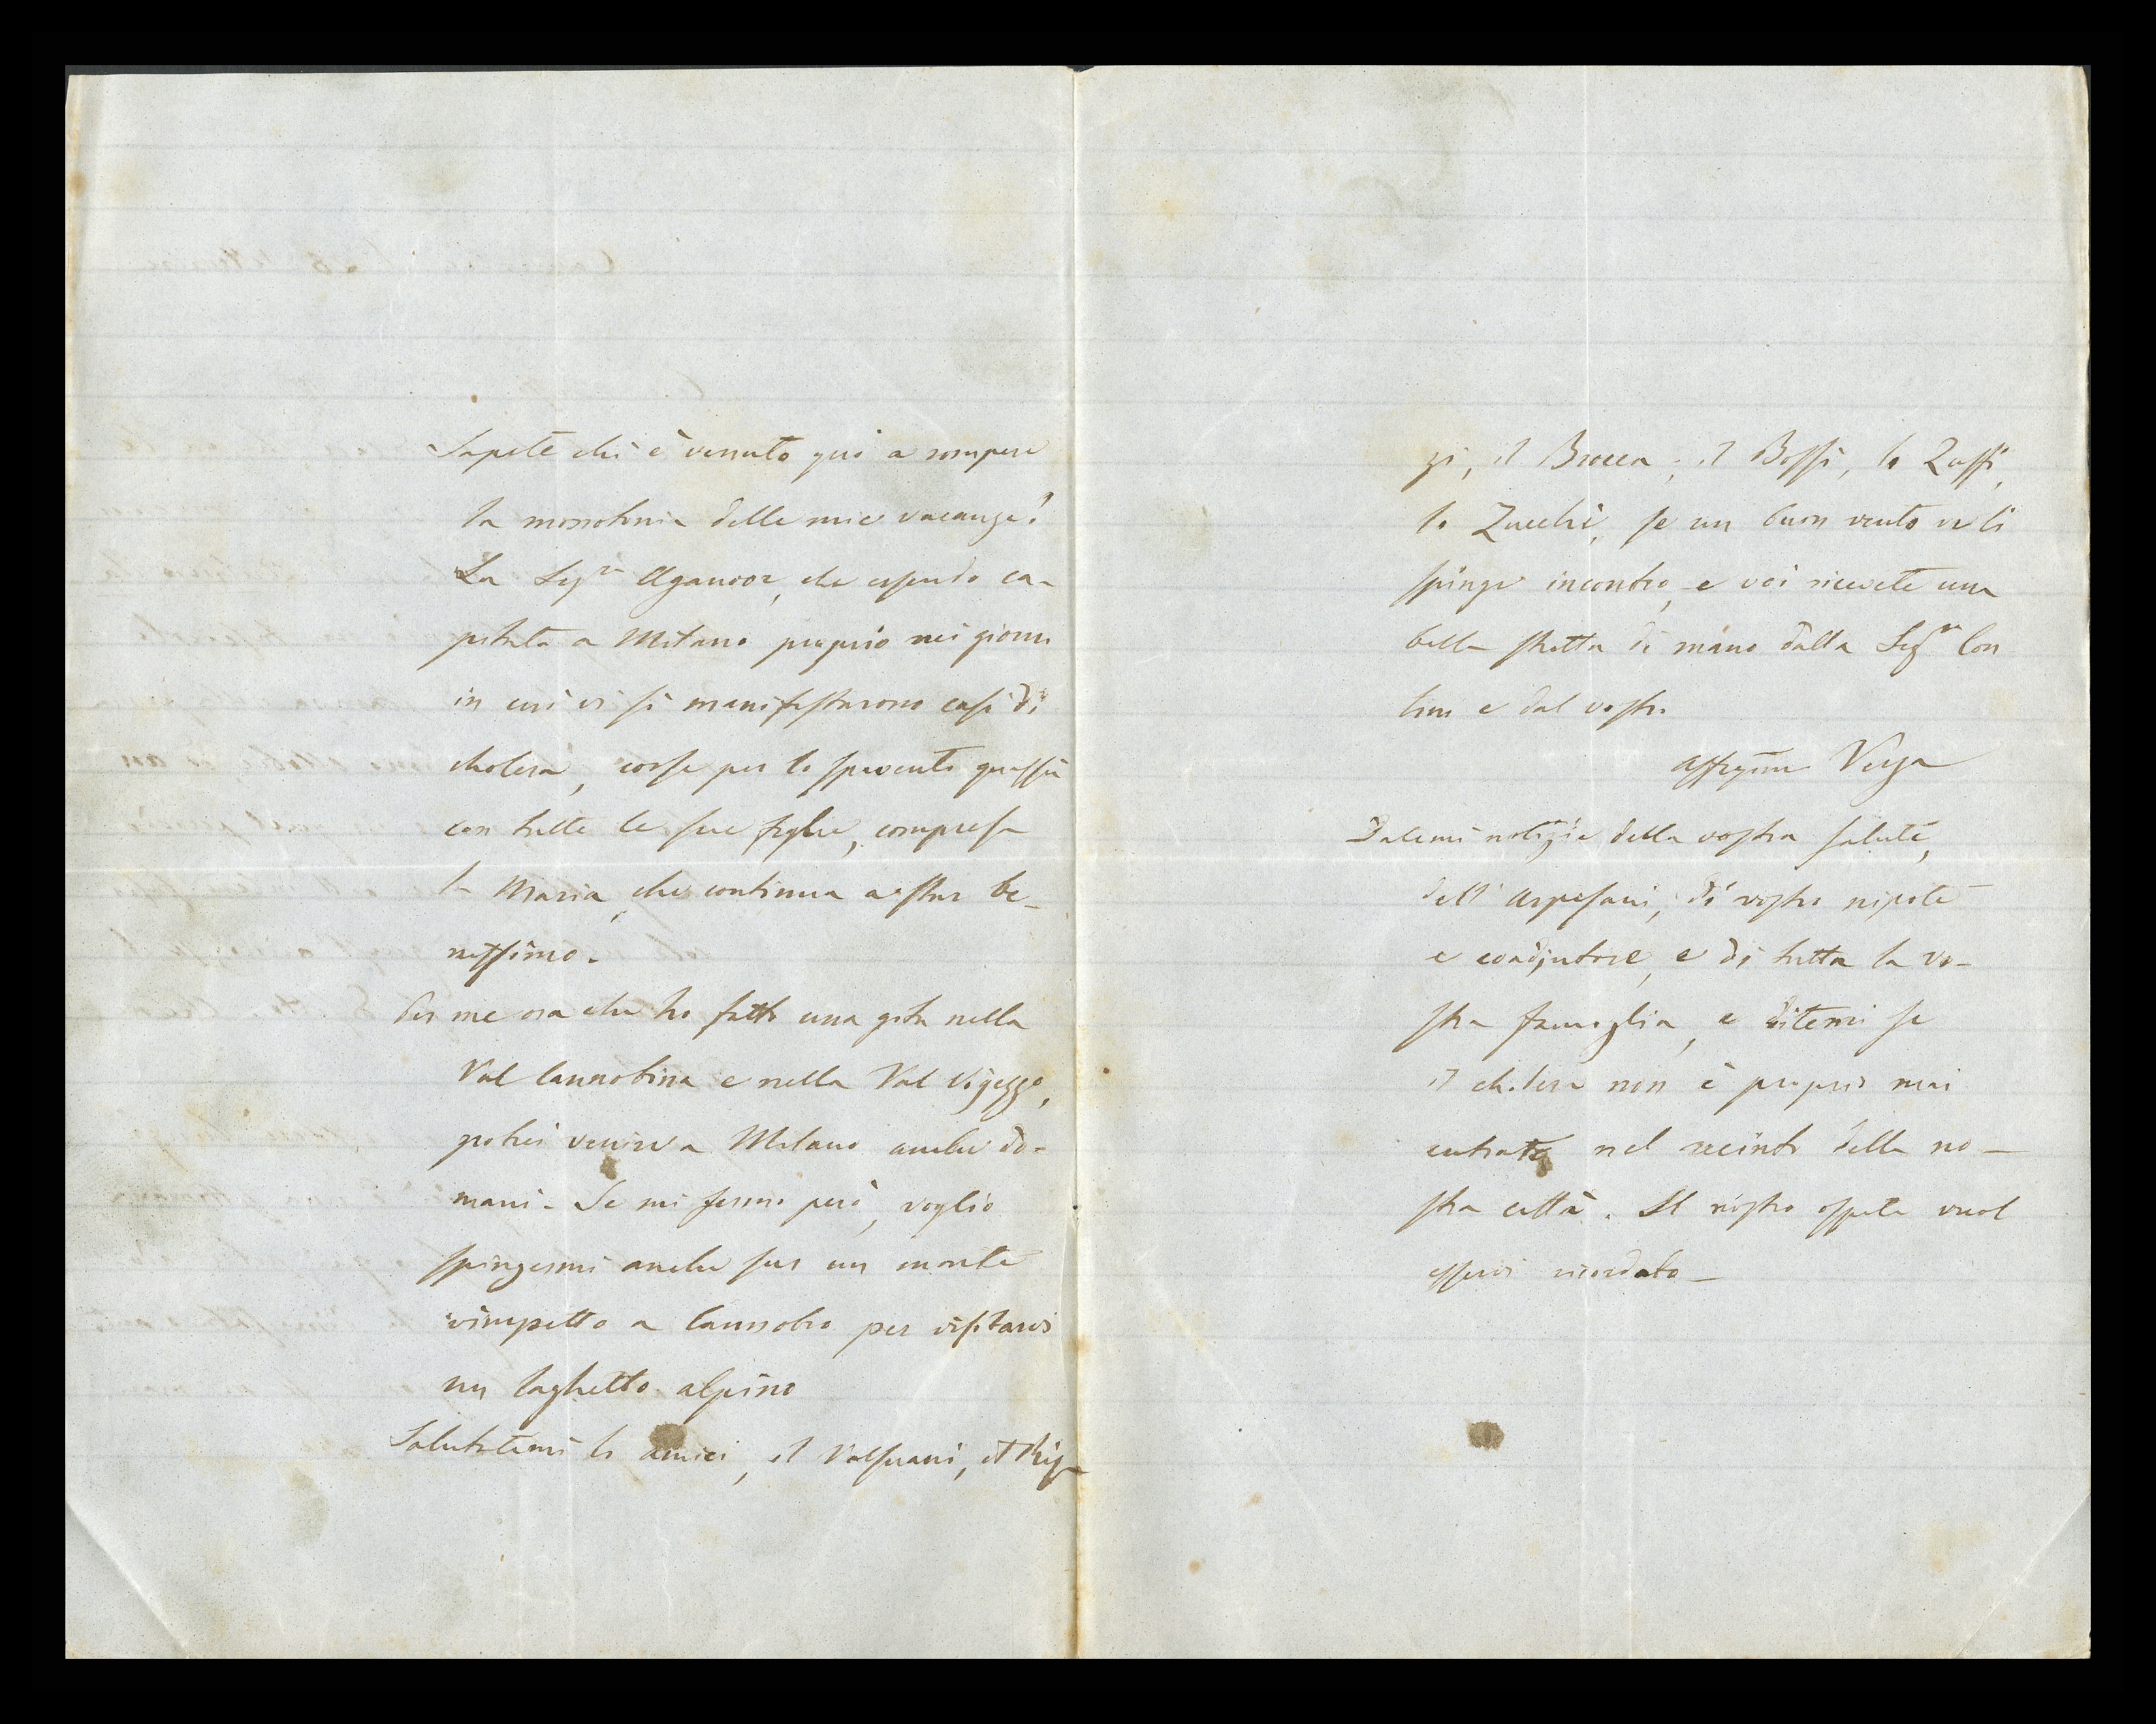 Sapete chi è venuto qui a rompere
la monotonia delle mie vacanze?
La Sigra Aganoor, che essendo ca-
pitata a Milano proprio nei giorni
in cui vi si manifestarono casi di
cholera, corse per lo spavento quassù
con tutte le sue figlie, compresa
la Maria, che continua a star be-
nissimo.
Per me ora che ho fatto una gita nella
Val Cannobina e nella Val Vigezzo,
potrei venire a Milano anche do-
mani. Se mi fermo però, voglio
spingermi anche sur un monte
rimpetto a Cannobio per visitarvi
un laghetto alpino
Salutatemi gli amici, il Valsuani, il Rig-
gi, il Brocca, il Bossi, lo Zaffi,
lo Zucchi, se un buon vento ve li
spinge incontro, e voi ricevete una
bella stretta di mano dalla Sigra Con
tini e dal vostro
affezmo Verga
Datemi notizie della vostra salute,
dell'Arpesani, di vostro nipote
e coadjutore, e di tutta la vo-
stra famiglia, e ditemi se
il cholera non è proprio mai
entrato nel recinto della no-
stra città. Il nostro ospite vuol
esservi ricordato-